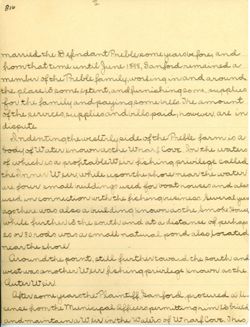 810
2
married the Defendant Preble, some years before, and
from that time until June 1898, Sanford remained a
member of the Preble family, working in and around
the place to some extent, and furnishing some supplies
for the family and paying some bills. The amount
of the services, supplies and bills paid, however, are in
dispute.
Indenting the westerly side of the Preble farm is a
body of water known as the Wharf Cove. In the waters
of which is a profitable Weir fishing privilege called
the Inner Weir, while upon the shore near the water
are four small buildings used for boat houses and also
used in connection with the fishing business. Several years
ago there was also a building known as the Smoke House
while further to the south and at a distance of perhaps
30 rods was a small natural pond also located
near the shore.
Around the point, still further toward the south and
west was another Weir fishing privilege known as the
Outer Weir.
After some years the Plaintiff, Sanford, procured a license
from the Municipal Officers permitting him to build
and maintain a Weir in the Waters of Wharf Cove. This